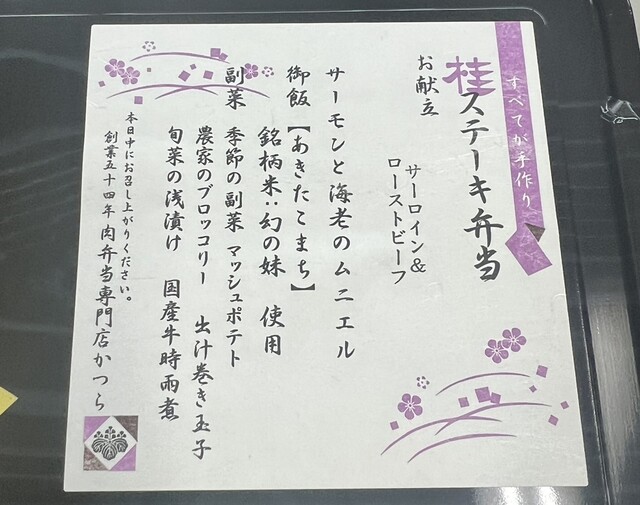 すべてが手作り
桂ステーキ弁当
お献立
サーロイン&
ローストビーフ
サーモンと海老のムニエル
御飯 【あきたこまち】
銘柄米：幻の妹 使用
副菜 季節の副菜 マッシュポテト
農家のブロッコリー 出汁巻き玉子
旬菜の浅漬け 国産牛時雨煮
本日中にお召し上がりください。
創業五十四年 肉弁当専門店かつら